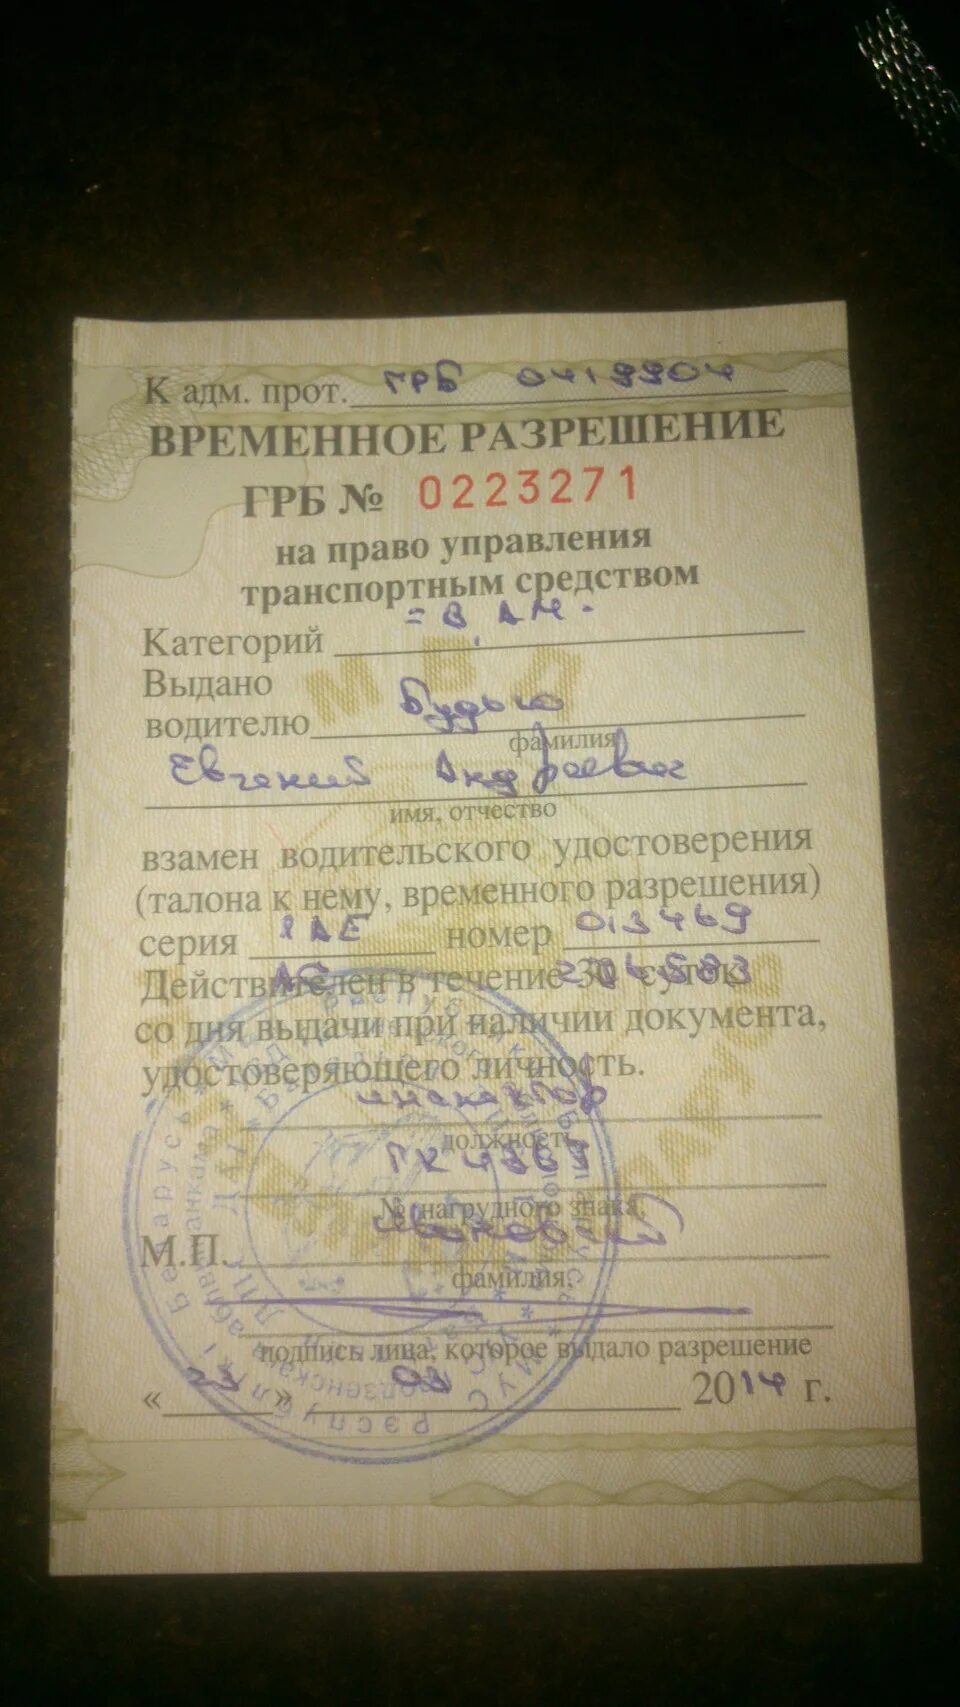 К адм. прот. ГРБ 0419904
ВРЕМЕННОЕ РАЗРЕШЕНИЕ
ГРБ № 0223271
на право управления
транспортным средством
Категорий = В, АМ -
Выдано
водителю Будько
фамилия
Евгений Андреевич
имя, отчество
взамен водительского удостоверения
(талона к нему, временного разрешения)
серия 1АЕ номер 013469
Действителен в течение 30 суток
со дня выдачи при наличии документа,
удостоверяющего личность.
инспектор
должность
ГК 4363
№ нагрудного знака,
М.П.
фамилия,
подпись лица, которое выдало разрешение
« » 2014 г.
МВД
Беларусь